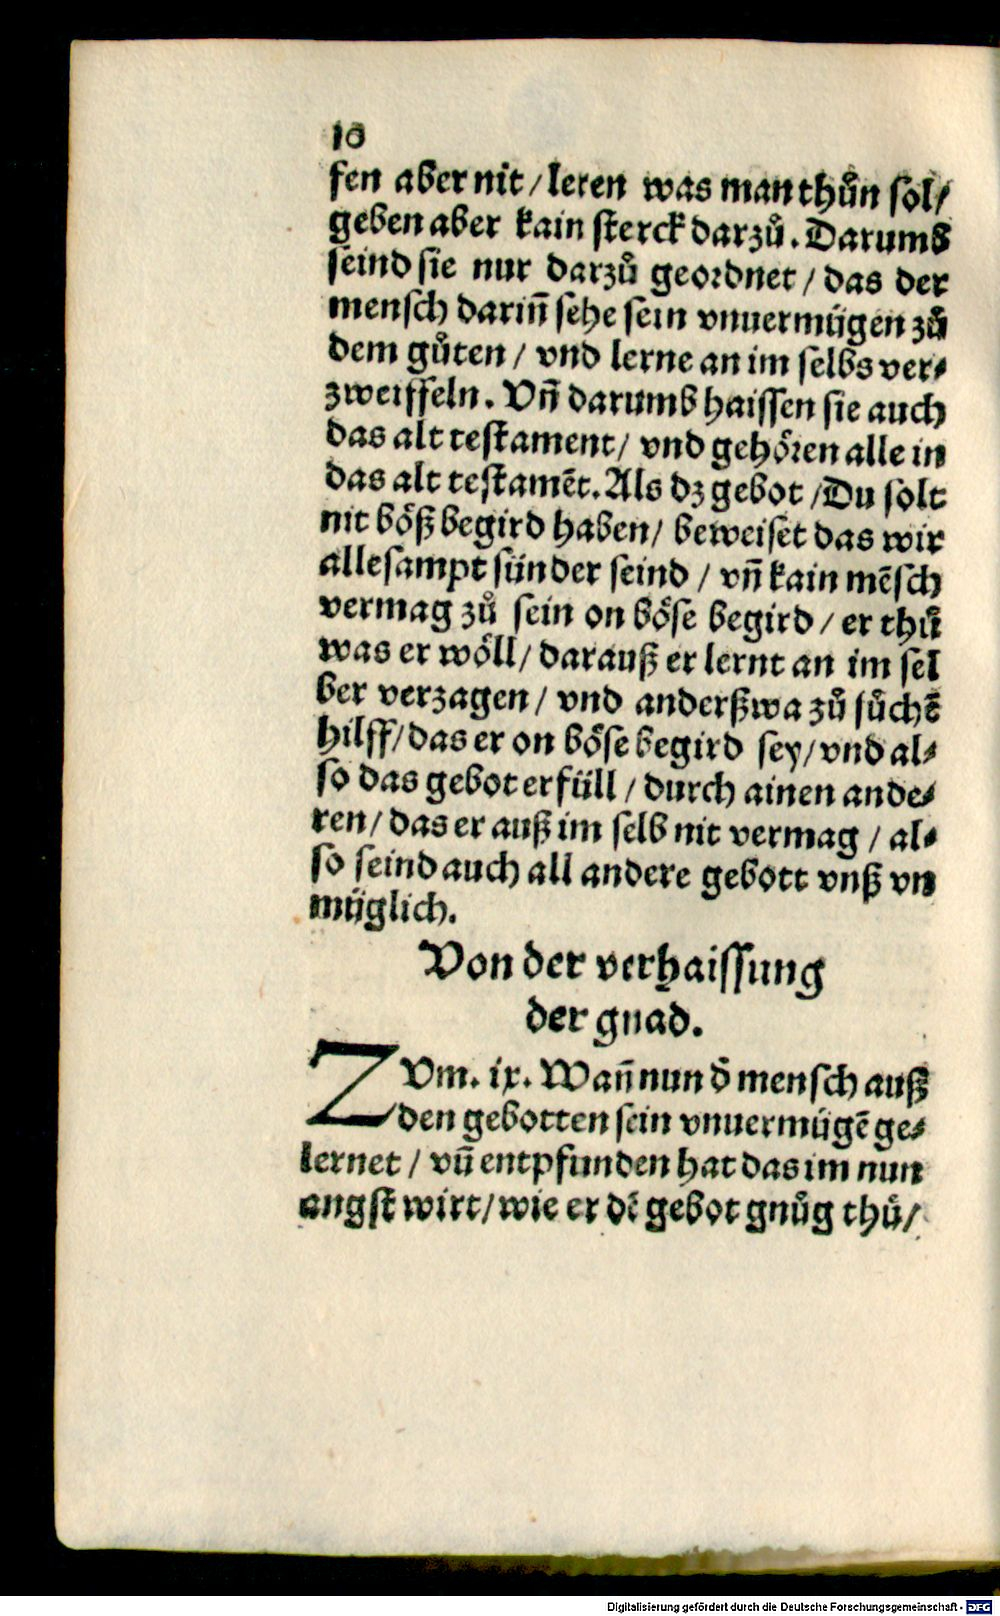 10
fen aber nit / leren was man thůn sol /
geben aber kain sterck darzů. Darumb
seind sie nur darzů geordnet / das der
mensch dariñ sehe sein vnuermügen zů
dem gůten / vnd lerne an im selbs ver⸗
zweiffeln. Vñ darumb haissen sie auch
das alt testament / vnd gehören alle in
das alt testamẽt. Als dz gebot / Du solt
nit böß begird haben / beweiset das wir
allesampt sünder seind / vñ kain mẽsch
vermag zů sein on böse begird / er thů
was er wöll / darauß er lernt an im sel
ber verzagen / vnd anderßwa zů sůchẽ
hilff / das er on böse begird sey / vnd al⸗
so das gebot erfüll / durch ainen ande⸗
ren / das er auß im selb nit vermag / al⸗
so seind auch all andere gebott vnß vn
müglich.
Von der verhaissung
der gnad.
ZVm. ix. Wañ nun d̃ mensch auß
den gebotten sein vnuermügẽ ge⸗
lernet / vñ entpfunden hat das im nun
angst wirt / wie er dẽ gebot gnůg thů /
Digitalisierung gefördert durch die Deutsche Forschungsgemeinschaft - DFG